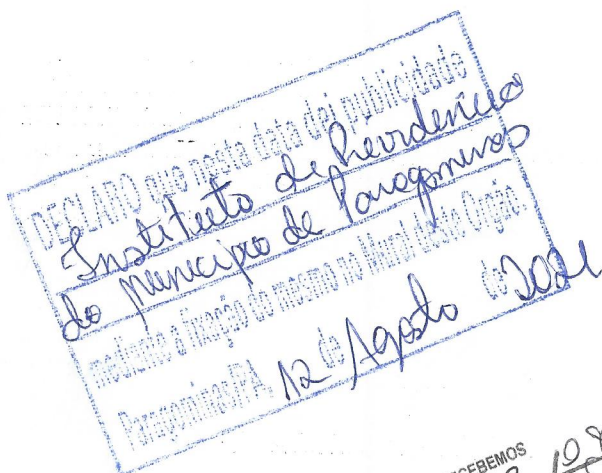 DECLARO que nesta data dei publicidade
Instituto de Previdencia
do municipio de Paragominas
mediante a fixação do mesmo no Mural deste Orgão.
Paragominas/PA, 12 de Agosto de 2021
RECEBEMOS